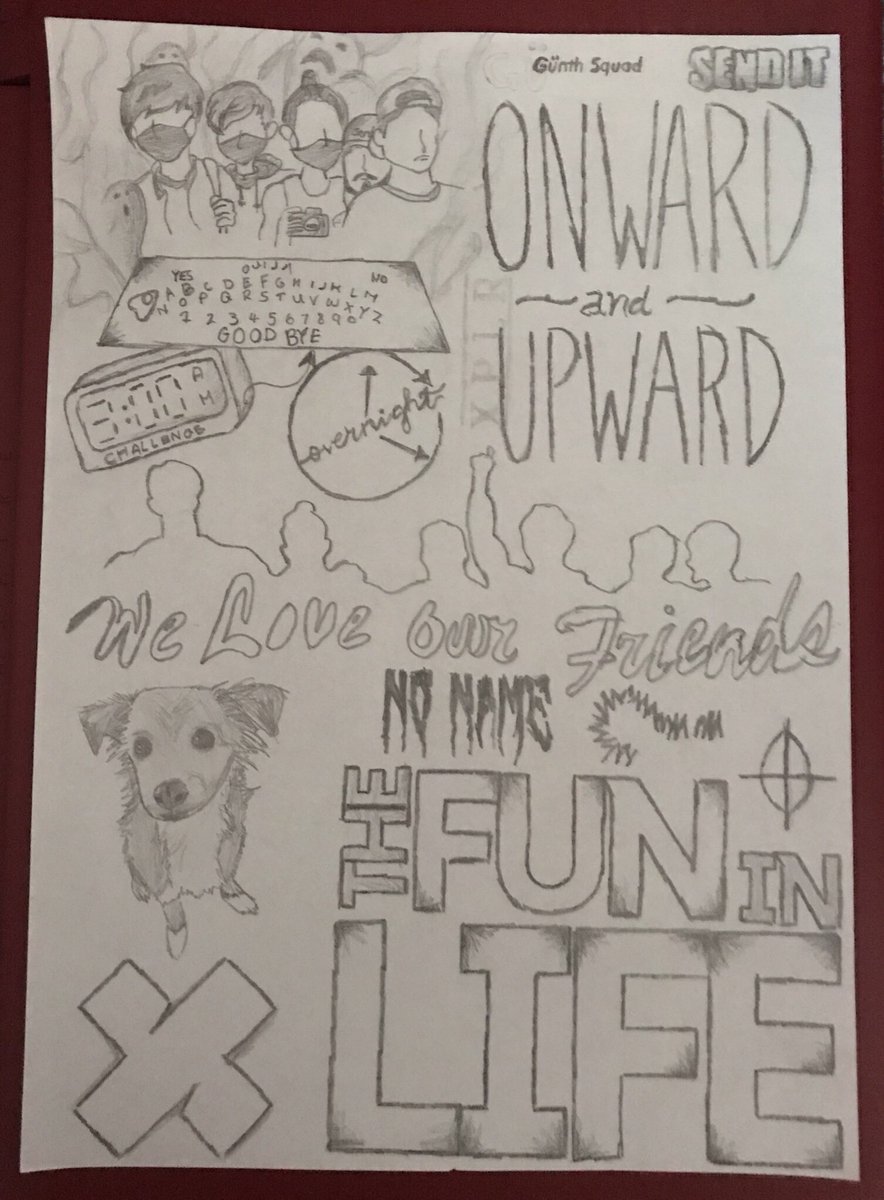 Günth Squad
SEND IT
ONWARD
and
UPWARD
XPLR
OUIJA
YES
NO
A B C D E F G H I J K L M
N O P Q R S T U V W X Y Z
1 2 3 4 5 6 7 8 9 0
GOOD BYE
3:00 AM
CHALLENGE
overnight
We Love our Friends
NO NAME
THE FUN IN
LIFE